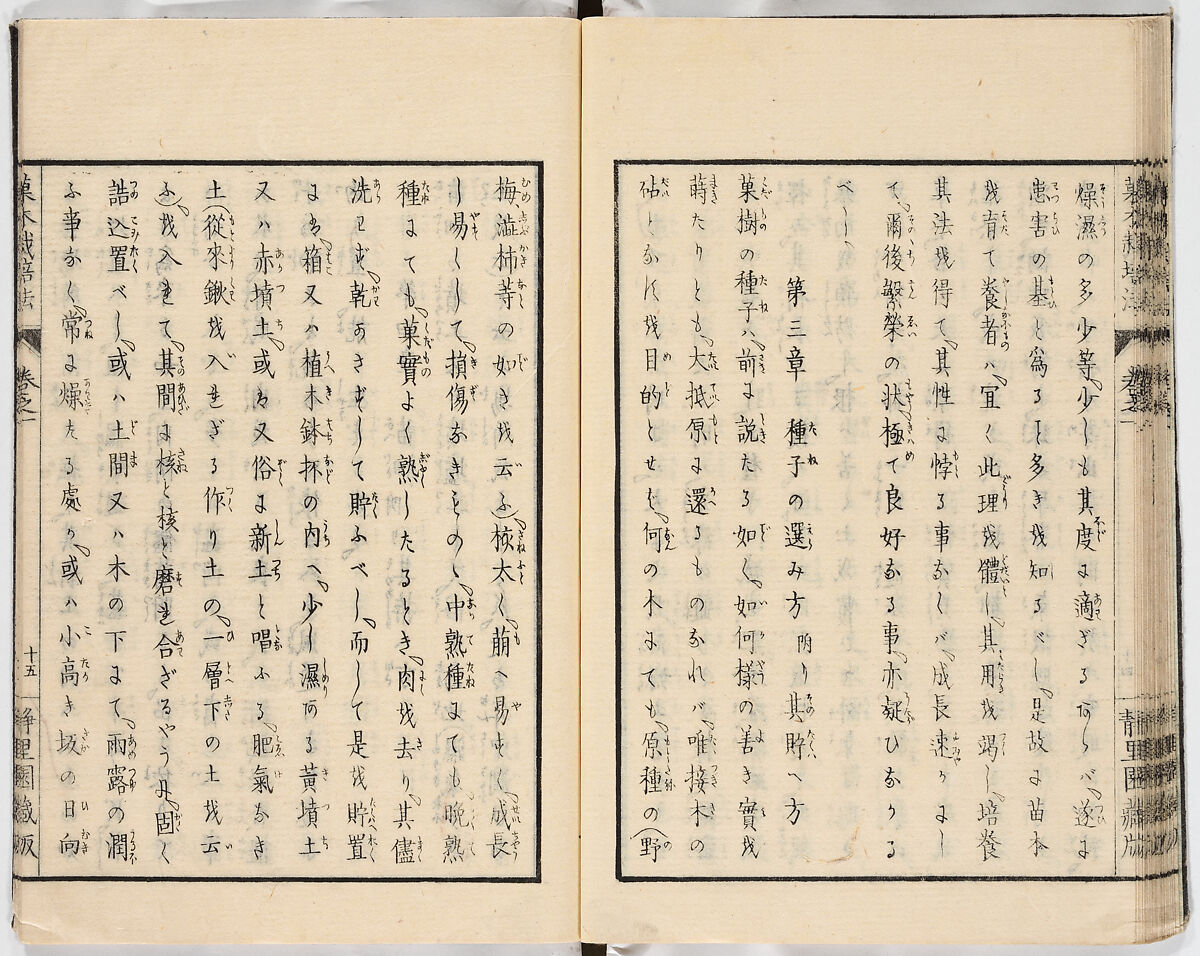 燥濕の多少等、少しも其度に適ざる阿らバ、遂に
患害の基と爲ると多きを知るべし、是故に苗木
を育て養者ハ、宜く此理を體し、其用を竭し、培養
其法を得て、其性に悖る事なくバ、成長速かにし
て、爾後繁榮の状極て良好なる事、亦疑ひなかる
べし、
第三章　種子の選み方　附り其貯へ方
菓樹の種子ハ、前に説たる如く、如何樣の善き實を
蒔たりとも、大抵原に還るものなれバ、唯接木の
砧となすを目的とせバ、何の木にても、原種の（野
梅澁柿等の如きを云ふ）核太く、萠へ易すく、成長
し易しくして、損傷なきもの、中熟種にても晩熟
種にても、菓實よく熟したるとき、肉を去り、其儘
洗ハず、乾かさずして貯ふべし、而して是を貯置
にハ、箱又ハ植木鉢抔の内へ、少し濕阿る黃墳土
又ハ赤墳土、或ハ又俗に新土と唱ふる、肥氣なき
土（從來鍬を入れざる作り土の、一層下の土を云
ふ）を入れて、其間に核と核と磨れ合ざるやうに、固く
詰込置べし、或ハ土間又ハ木の下にて、雨露の潤
ふ事なく、常に燥たる處か、或ハ小高き坂の日向
菓木栽培法　卷之一　十五　靜里園藏版